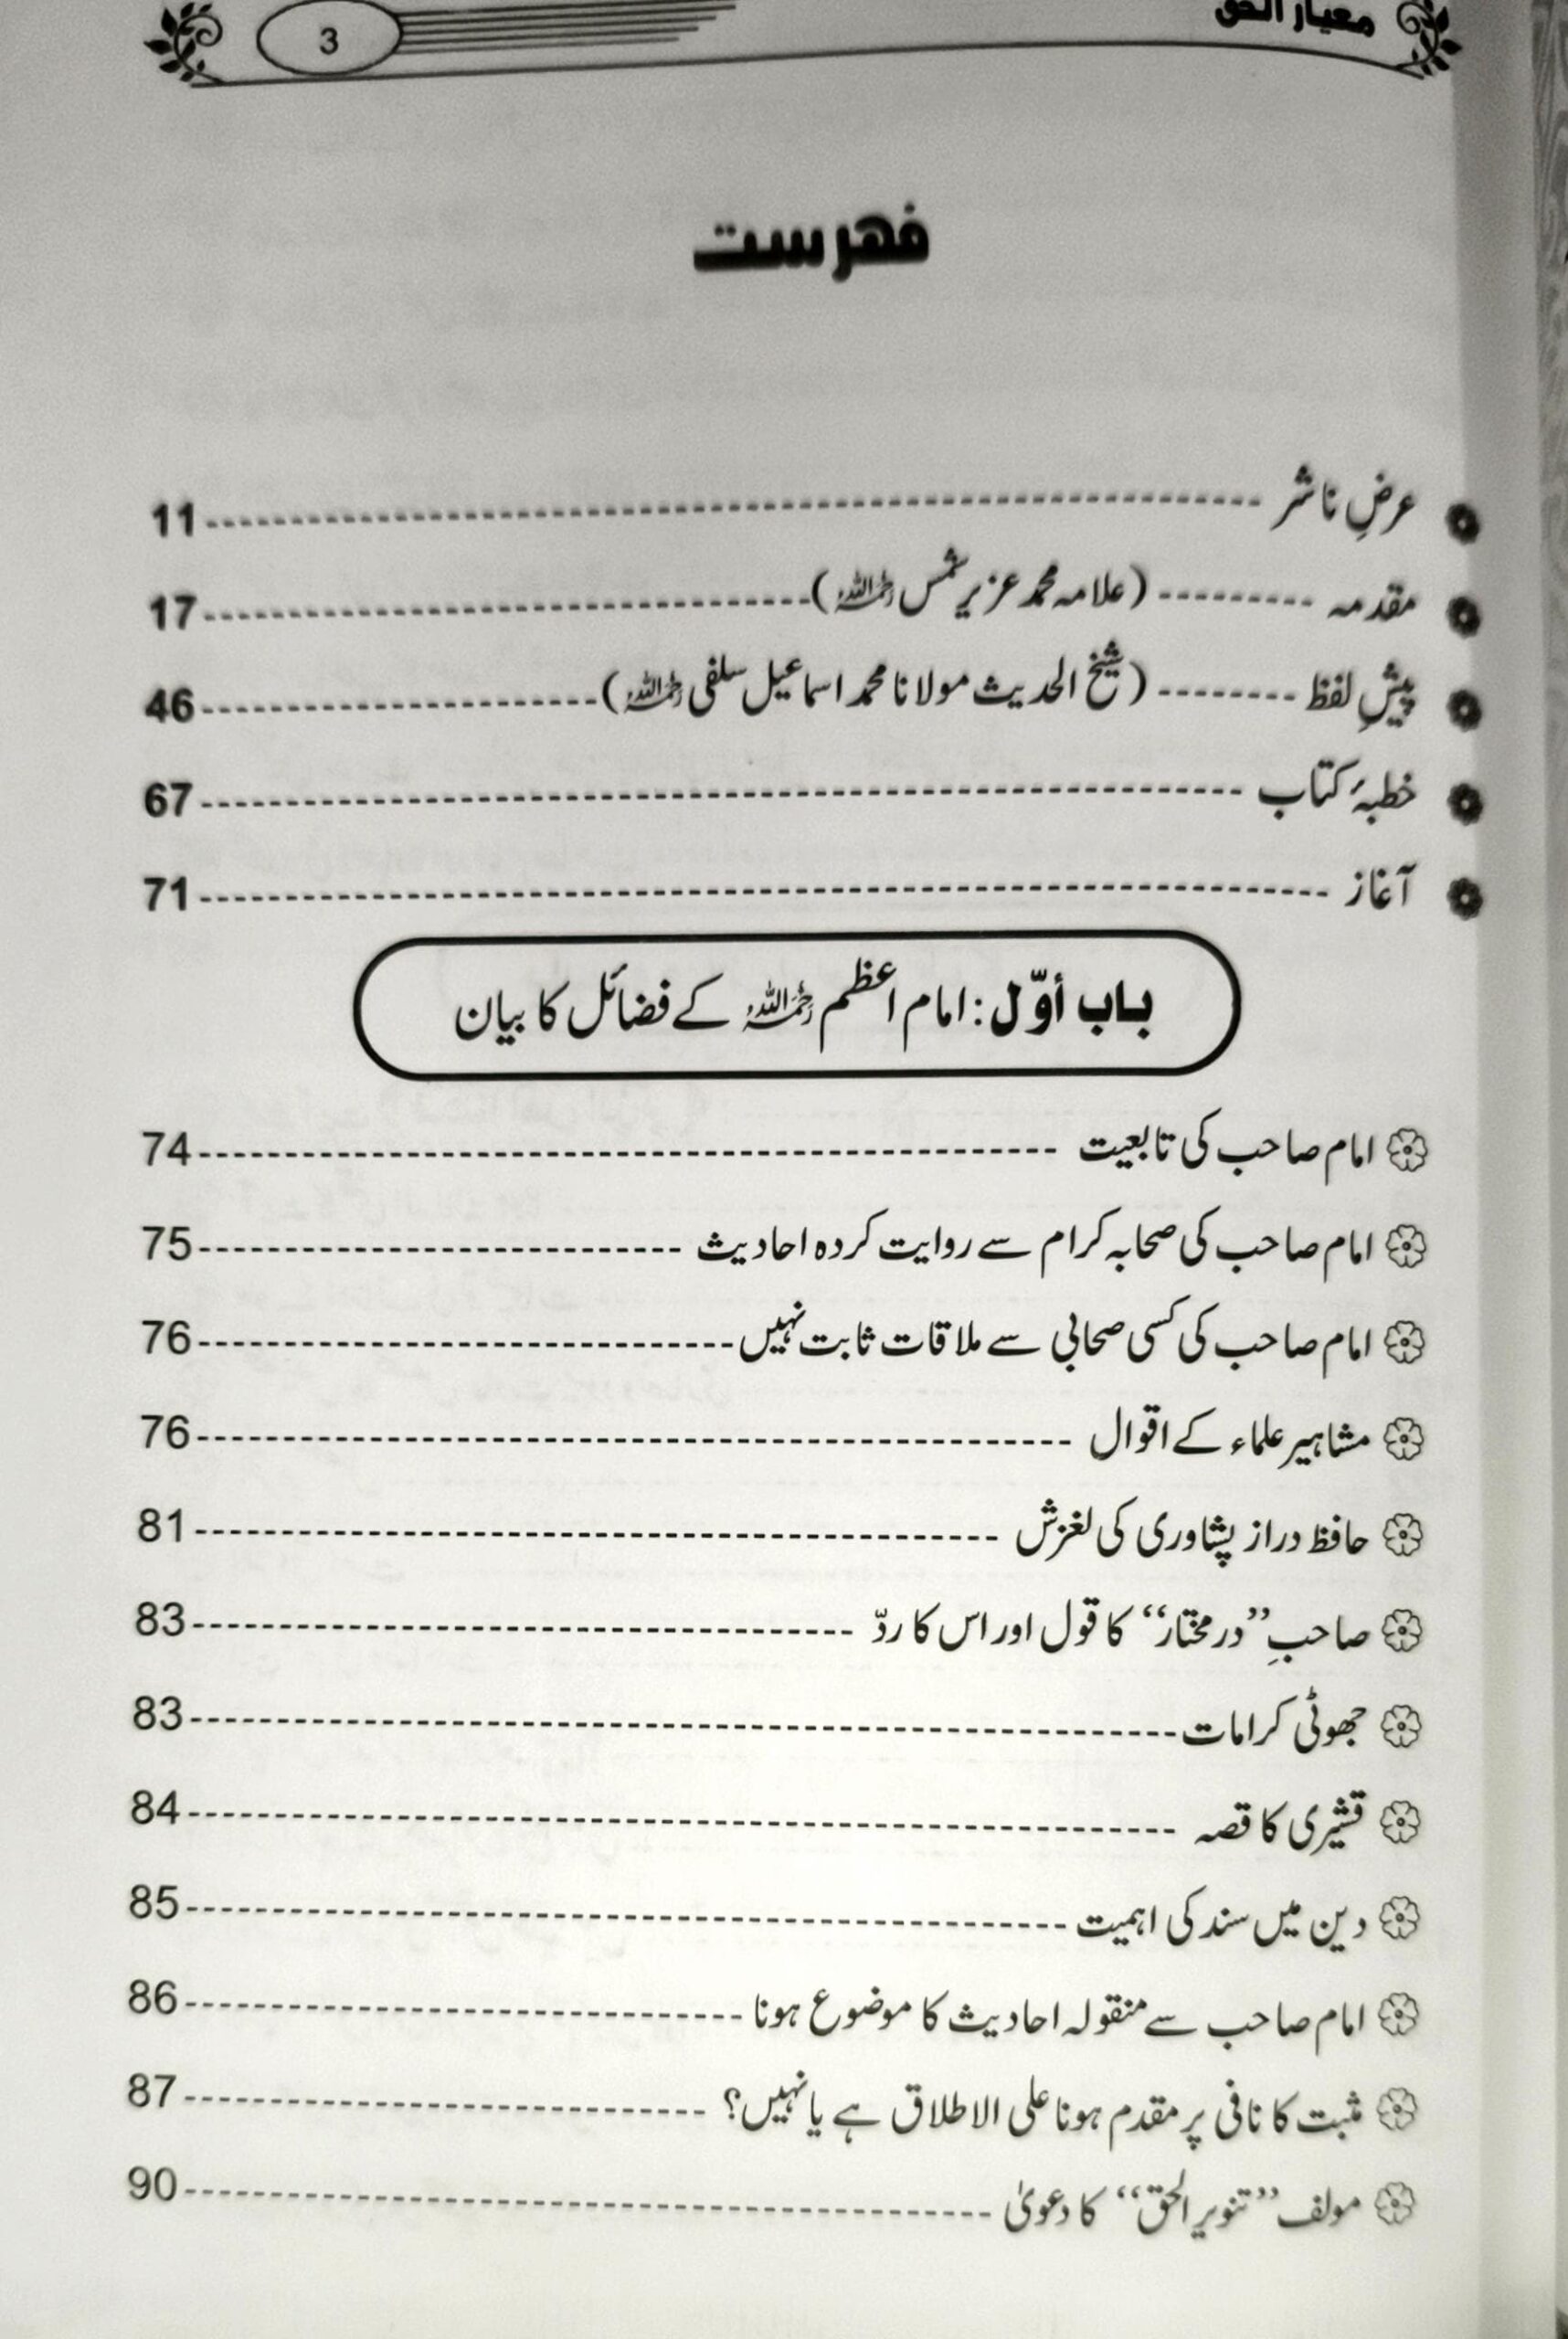 معیار الحق 3
فہرست
عرضِ ناشر 11
مقدمہ (علامہ محمد عزیر شمس رحمہ اللہ) 17
پیشِ لفظ (شیخ الحدیث مولانا محمد اسماعیل سلفی رحمہ اللہ) 46
خطبۂ کتاب 67
آغاز 71
باب أوّل: امام اعظم رحمہ اللہ کے فضائل کا بیان
امام صاحب کی تابعیت 74
امام صاحب کی صحابہ کرام سے روایت کردہ احادیث 75
امام صاحب کی کسی صحابی سے ملاقات ثابت نہیں 76
مشاہیر علماء کے اقوال 76
حافظ دراز پشاوری کی لغزش 81
صاحبِ ”در مختار“ کا قول اور اس کا ردّ 83
جھوٹی کرامات 83
قشیری کا قصہ 84
دین میں سند کی اہمیت 85
امام صاحب سے منقولہ احادیث کا موضوع ہونا 86
مثبت کا نافی پر مقدم ہونا علی الاطلاق ہے یا نہیں؟ 87
مولف ”تنویر الحق“ کا دعویٰ 90